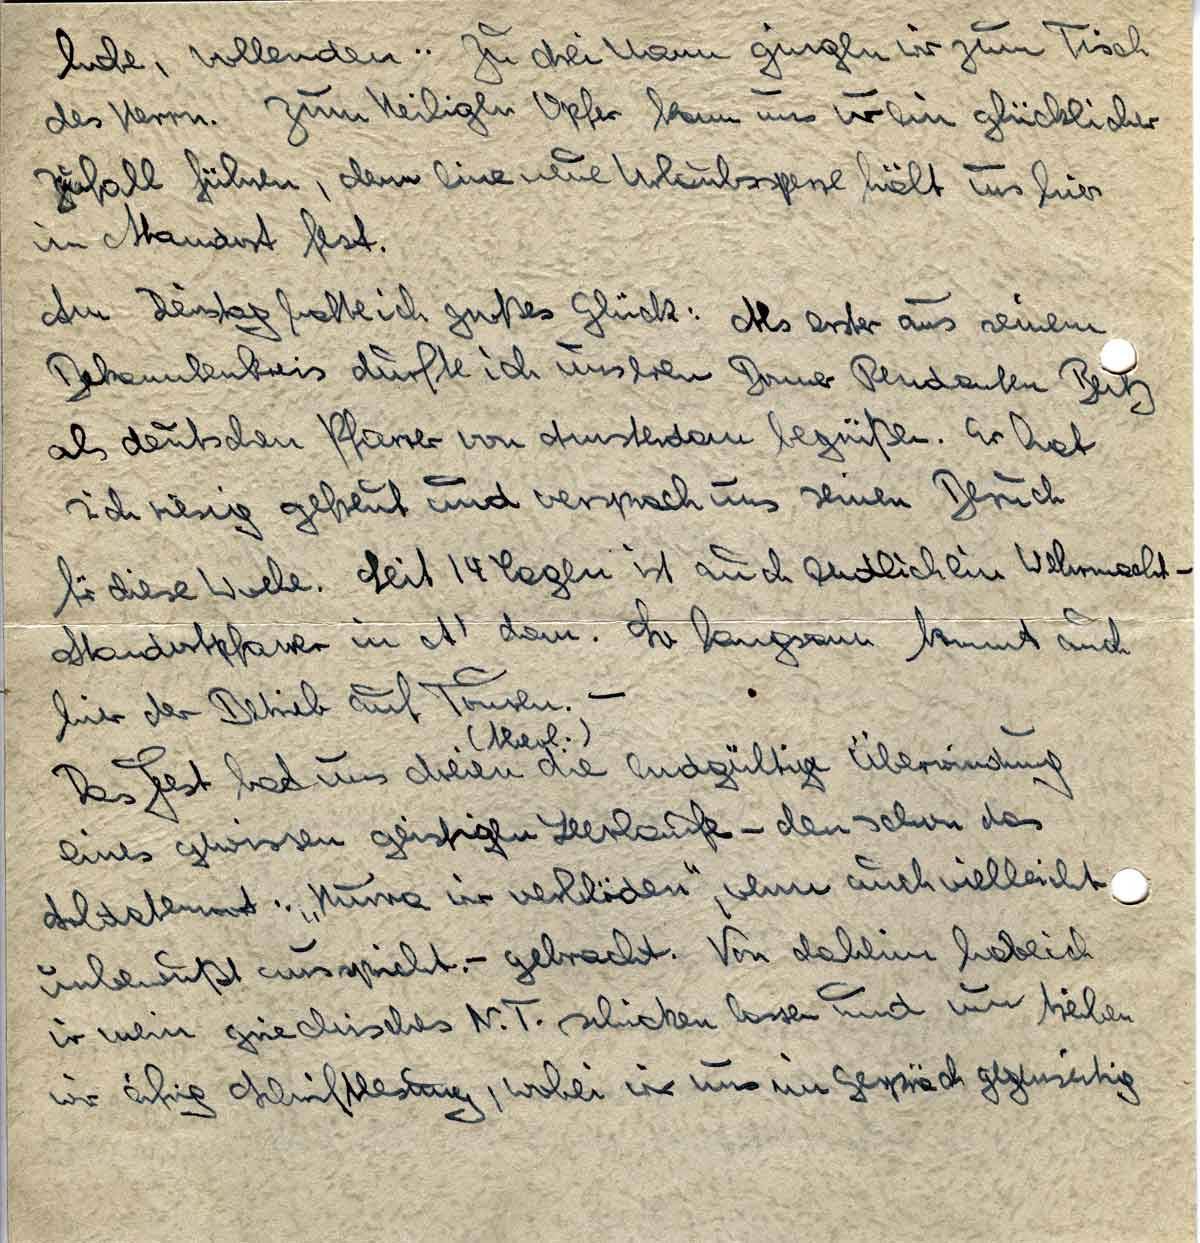 habe, vollenden". Zu drei Mann gingen wir zum Tisch
des Herrn. Zum Heiligen Opfer kann uns nur ein glücklicher
Zufall führen, denn eine neue Urlaubssperre hält uns hier
im Standort fest.
Am Dienstag hatte ich großes Glück: Als erster aus seinem
Bekanntenkreis durfte ich unseren Bonner Rendanten
als deutschen Pfarrer von Amsterdam begrüßen. Er hat
sich riesig gefreut und versprach uns seinen Besuch
für diese Woche. Seit 14 Tagen ist auch endlich ein Wehrmacht-
Standortpfarrer in A'dam. So langsam kommt auch
hier der Betrieb auf Touren. —
(theol.)
Das Fest hat uns dreien die endgültige Überwindung
eines gewissen geistigen Leerlaufs – den schon das
Soldatenwort: „Hurra wir verblöden", wenn auch vielleicht
unbewußt ausspricht. – gebracht. Von daheim habe ich
mir mein griechisches N.T. schicken lassen und nun treiben
wir eifrig Schriftlesung, wobei wir uns im Gespräch gegenseitig